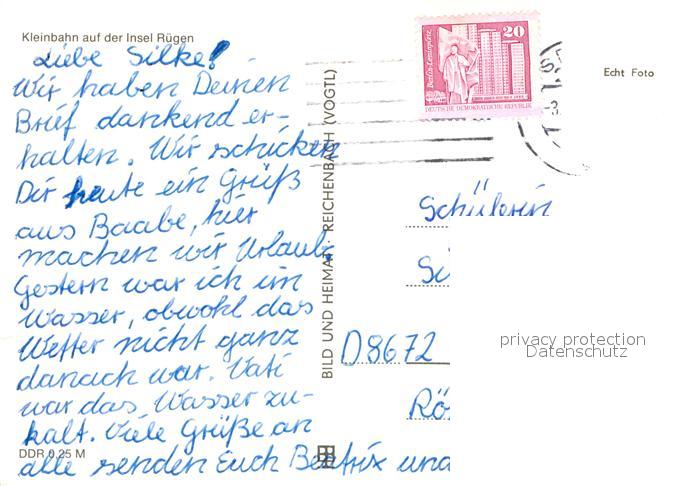 Kleinbahn auf der Insel Rügen
Liebe Silke!
Wir haben Deinen
Brief dankend er-
halten. Wir schicken
Dir heute ein Grüß
aus Baabe, hier
machen wir Urlaub.
Gestern war ich im
Wasser, obwohl das
Wetter nicht ganz
danach war. Vati
war das Wasser zu-
kalt. Viele Grüße an
alle senden Euch Beatrix und
DDR 0,25 M
BILD UND HEIMAT · REICHENBACH (VOGTL)
20
Berlin-Leninplatz
DEUTSCHE DEMOKRATISCHE REPUBLIK
Echt Foto
Schülerin
D8672
privacy protection
Datenschutz